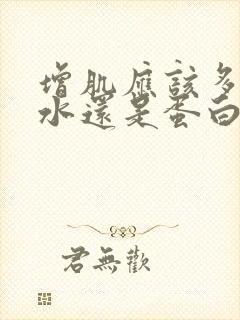 增肌應該多
水還是蛋白
君無歡